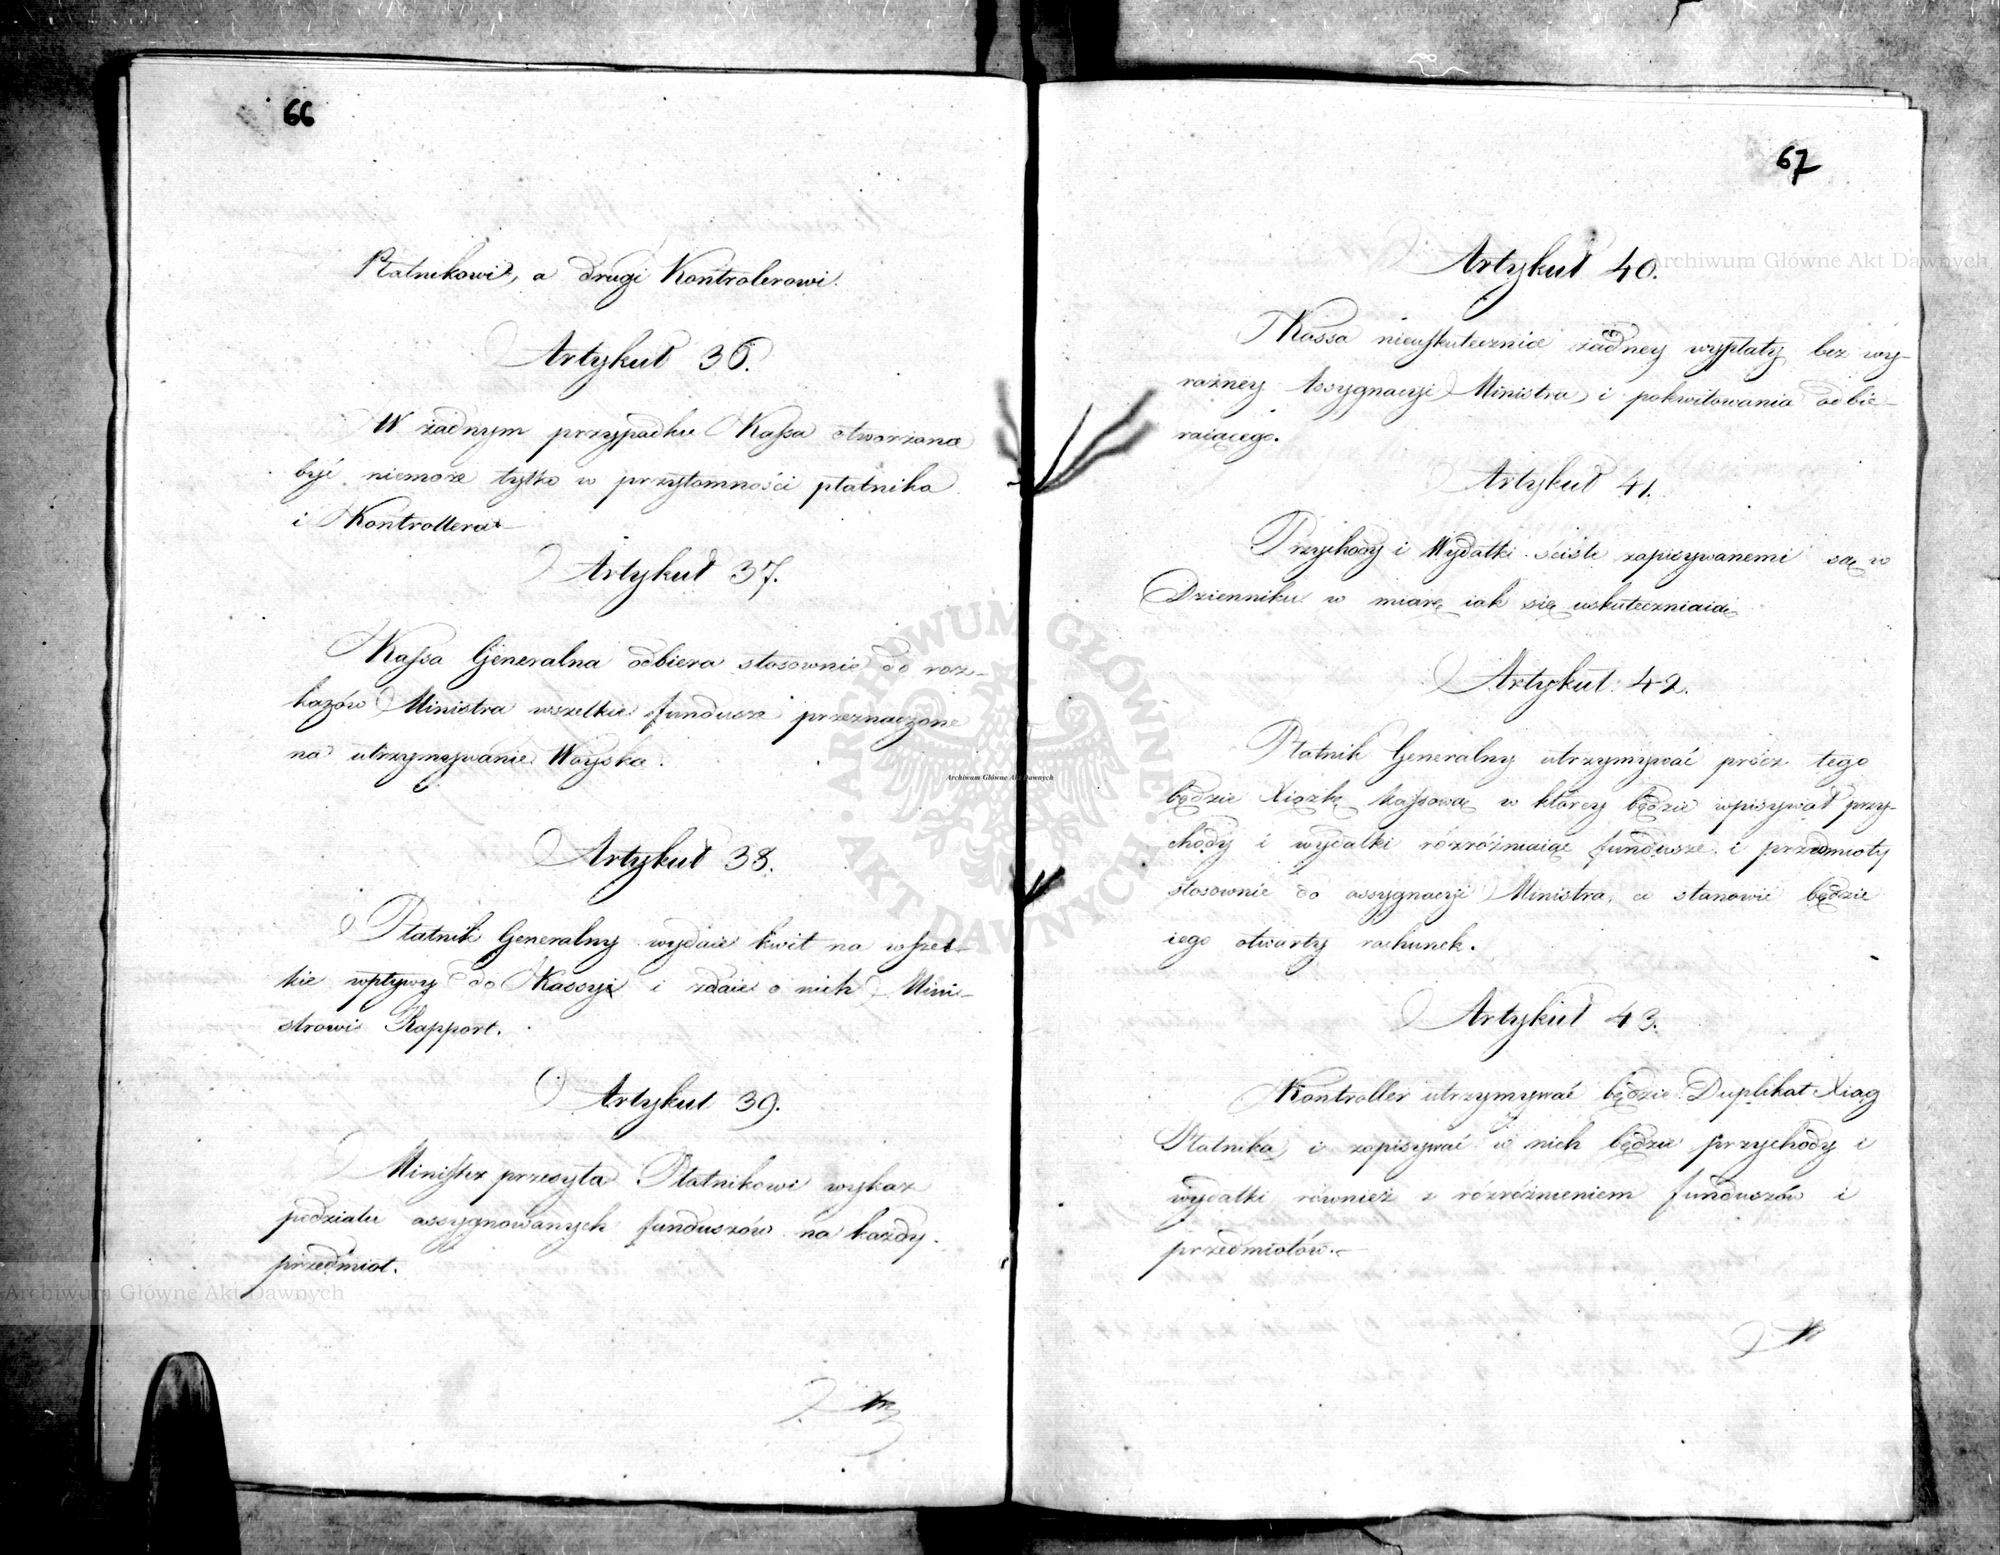 66
Płatnikowi, a drugi Kontrolerowi.
Artykuł 36.
W żadnym przypadku Kassa otworzona
być niemoże tylko w przytomności płatnika
i Kontrollera
Artykuł 37.
Kassa Generalna odbiera stosownie do roz-
kazów Ministra wszelkie fundusze przeznaczone
na utrzymywanie Woyska.
Artykuł 38.
Płatnik Generalny wydaie kwit na wszel-
kie wpływy do Kassy i zdaie o nich Mini-
strowi Rapport.
Artykuł 39.
Minister przesyła Płatnikowi wykaz
podziału assygnowanych funduszów na każdy
przedmiot.
67
Artykuł 40.
Kassa nieuskutecznia żadney wypłaty bez wy-
raźney Assygnacyi Ministra, i pokwitowania odbie-
raiącego.
Artykuł 41.
Przychody i Wydatki ściśle zapisywanemi są w
Dzienniku w miarę iak się uskuteczniaią
Artykuł 42.
Płatnik Generalny utrzymywać prócz tego
będzie Xiążkę Kassową w którey będzie wpisywał przy-
chody i wydatki rozróżniaiąc fundusze i przedmioty
stosownie do assygnacyi Ministra, a stanowić będzie
iego otwarty rachunek.
Artykuł 43.
Kontroller utrzymywać będzie Duplikat Xiąg
Płatnika, i zapisywać w nich będzie przychody i
wydatki również z rozróżnieniem funduszów i
przedmiotów.
Archiwum Główne Akt Dawnych
ARCHIWUM GŁÓWNE AKT DAWNYCH
Archiwum Główne Akt Dawnych
Archiwum Główne Akt Dawnych